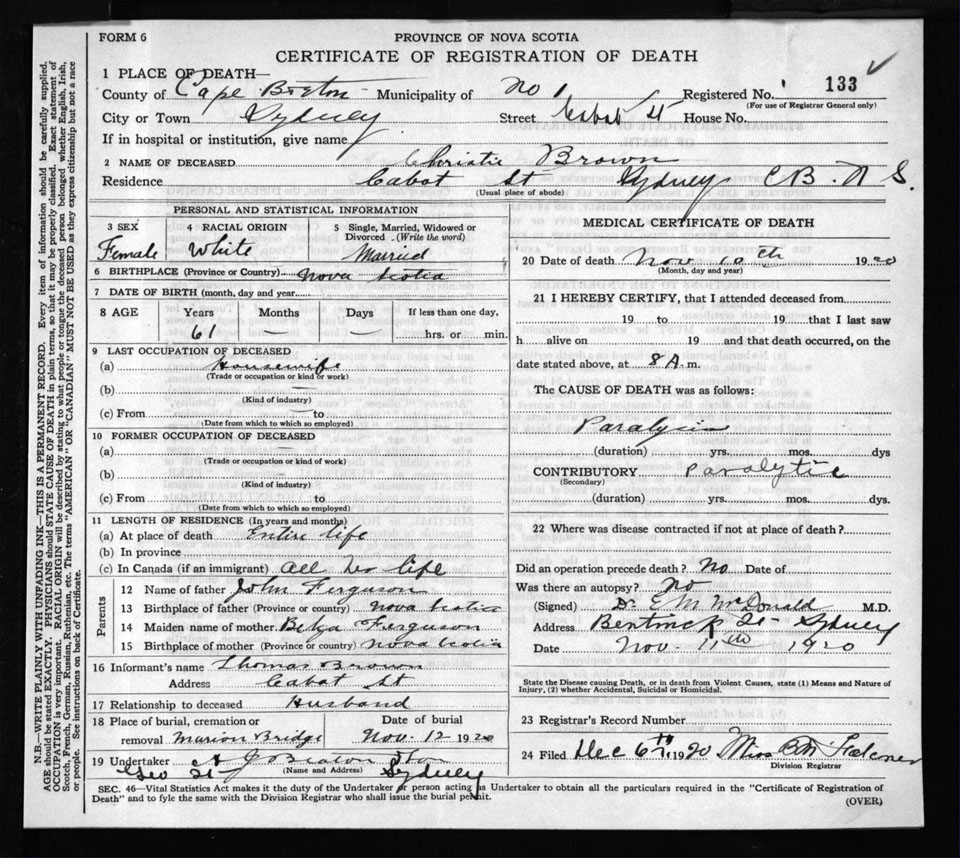 FORM 6
PROVINCE OF NOVA SCOTIA
CERTIFICATE OF REGISTRATION OF DEATH
1 PLACE OF DEATH—
County of Cape Breton Municipality of No 1 Registered No. 133
(For use of Registrar General only)
City or Town Sydney Street Cabot St House No.
If in hospital or institution, give name
2 NAME OF DECEASED Christie Brown
Residence Cabot St Sydney C B. N S.
(Usual place of abode)
PERSONAL AND STATISTICAL INFORMATION
3 SEX 4 RACIAL ORIGIN 5 Single, Married, Widowed or
Divorced . (Write the word)
Female White Married
6 BIRTHPLACE (Province or Country) Nova Scotia
7 DATE OF BIRTH (month, day and year
8 AGE Years Months Days If less than one day,
61 — — hrs. or min.
9 LAST OCCUPATION OF DECEASED
(a) Housewife
(Trade or occupation or kind of work)
(b) —
(Kind of industry)
(c) From — to
(Date from which to which so employed)
10 FORMER OCCUPATION OF DECEASED
(a) —
(Trade or occupation or kind of work)
(b) —
(Kind of industry)
(c) From to
(Date from which to which so employed)
11 LENGTH OF RESIDENCE (In years and months)
(a) At place of death Entire life
(b) In province
(c) In Canada (if an immigrant) all her life
Parents
12 Name of father John Ferguson
13 Birthplace of father (Province or country) Nova Scotia
14 Maiden name of mother Ferguson
15 Birthplace of mother (Province or country) Nova Scotia
16 Informant's name Thomas Brown
Address Cabot St
17 Relationship to deceased Husband
18 Place of burial, cremation or Date of burial
removal Marion Bridge Nov. 12 1920
19 Undertaker A J Beaton
(Name and Address)
Geo St Sydney
MEDICAL CERTIFICATE OF DEATH
20 Date of death Nov 10th 1920
(Month, day and year)
21 I HEREBY CERTIFY, that I attended deceased from
19 to 19 that I last saw
h alive on 19 and that death occurred, on the
date stated above, at 8 A. m.
The CAUSE OF DEATH was as follows:
Paralysis
(duration) yrs. mos. dys
CONTRIBUTORY Paralytic
(Secondary)
(duration) yrs. mos. dys.
22 Where was disease contracted if not at place of death?
Did an operation precede death? No Date of
Was there an autopsy? No
(Signed) Dr E M McDonald M.D.
Address St - Sydney
Date Nov. 11th 1920
State the Disease causing Death, or in death from Violent Causes, state (1) Means and Nature of
Injury, (2) whether Accidental, Suicidal or Homicidal.
23 Registrar's Record Number
24 Filed Dec 6th 1920 Miss
Division Registrar
SEC. 46—Vital Statistics Act makes it the duty of the Undertaker or person acting as Undertaker to obtain all the particulars required in the "Certificate of Registration of
Death" and to fyle the same with the Division Registrar who shall issue the burial permit.
(OVER)
N.B.—WRITE PLAINLY WITH UNFADING INK—THIS IS A PERMANENT RECORD. Every item of information should be carefully supplied.
AGE should be stated EXACTLY. PHYSICIANS should STATE CAUSE OF DEATH in plain terms, so that it may be properly classified. Exact statement of
OCCUPATION is very important. RACIAL ORIGIN will be described by stating to what people or tongue the deceased person belonged whether English, Irish,
Scotch, French, German, Russian, Ruthenian, etc. The terms "AMERICAN" OR "CANADIAN" MUST NOT BE USED as they express citizenship but not a race
or people. See instructions on back of Certificate.